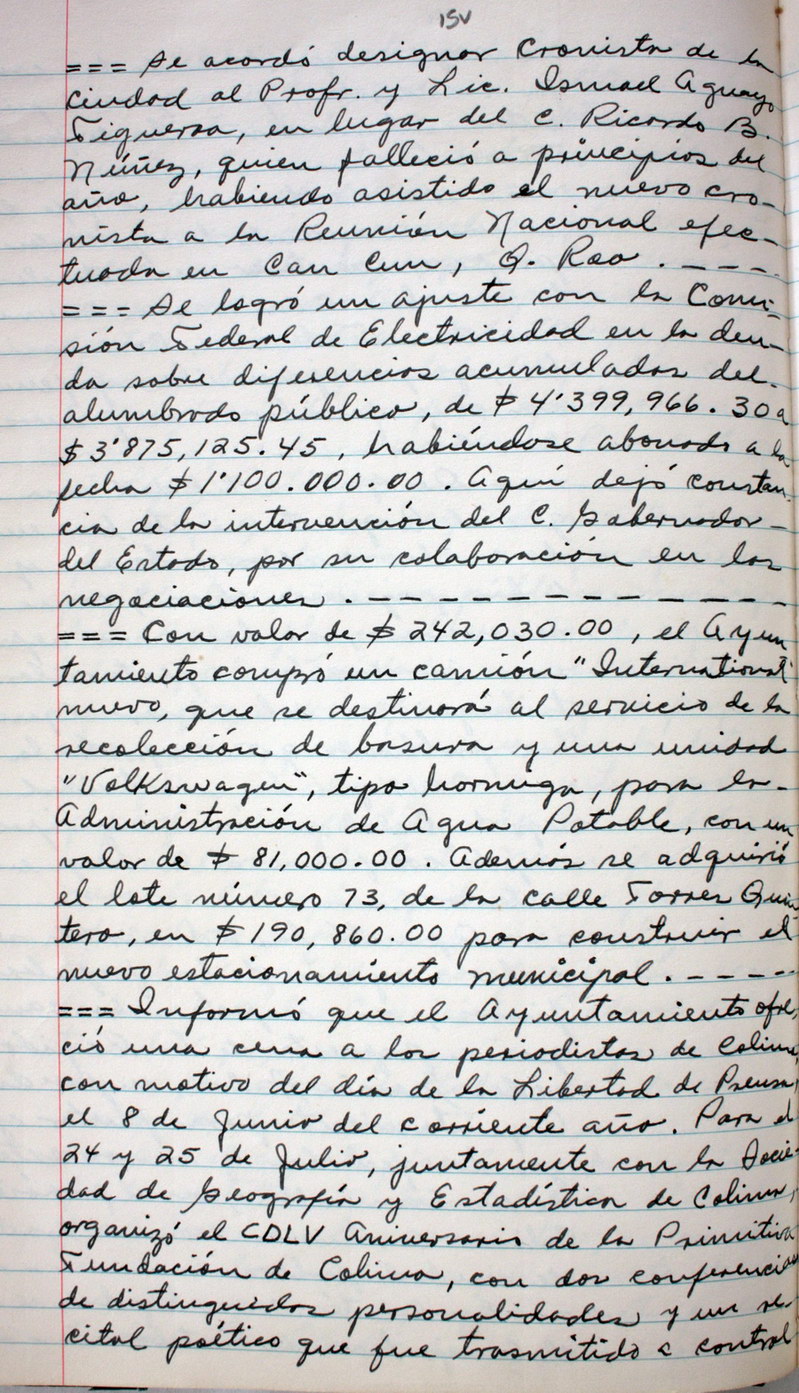 15v
=== Se acordó designar Cronista de la
Ciudad al Profr. y Lic. Ismael Aguayo
Figueroa, en lugar del C. Ricardo B.
Núñez, quien falleció a principios del
año, habiendo asistido el nuevo cro-
nista a la Reunión Nacional efec-
tuada en Can Cun, Q. Roo. - - -
=== Se logró un ajuste con la Comi-
sión Federal de Electricidad en la deu-
da sobre diferencias acumuladas del
alumbrado público, de $ 4'399,966.30 a
$ 3'875,125.45, habiéndose abonado a la
fecha $ 1'100.000.00. Aquí dejó constan-
cia de la intervención del C. Gobernador -
del Estado, por su colaboración en las
negociaciones. - - - - - - - - - - - - -
=== Con valor de $ 242,030.00, el Ayun
tamiento compró un camión "International"
nuevo, que se destinará al servicio de la
recolección de basura y una unidad
"Volkswagen", tipo hormiga, para la -
Administración de Agua Potable, con un
valor de $ 81,000.00. Además se adquirió
el lote número 73, de la calle Torres Quin
tero, en $ 190,860.00 para construir el
nuevo estacionamiento municipal. - - - - -
=== Informó que el Ayuntamiento ofre-
ció una cena a los periodistas de Colima,
con motivo del día de la Libertad de Prensa,
el 8 de Junio del corriente año. Para el
24 y 25 de Julio, juntamente con la Socie-
dad de Geografía y Estadística de Colima,
organizó el CDLV Aniversario de la Primitiva
Fundación de Colima, con dos conferencias
de distinguidas personalidades y un re-
cital poético que fue trasmitido a control